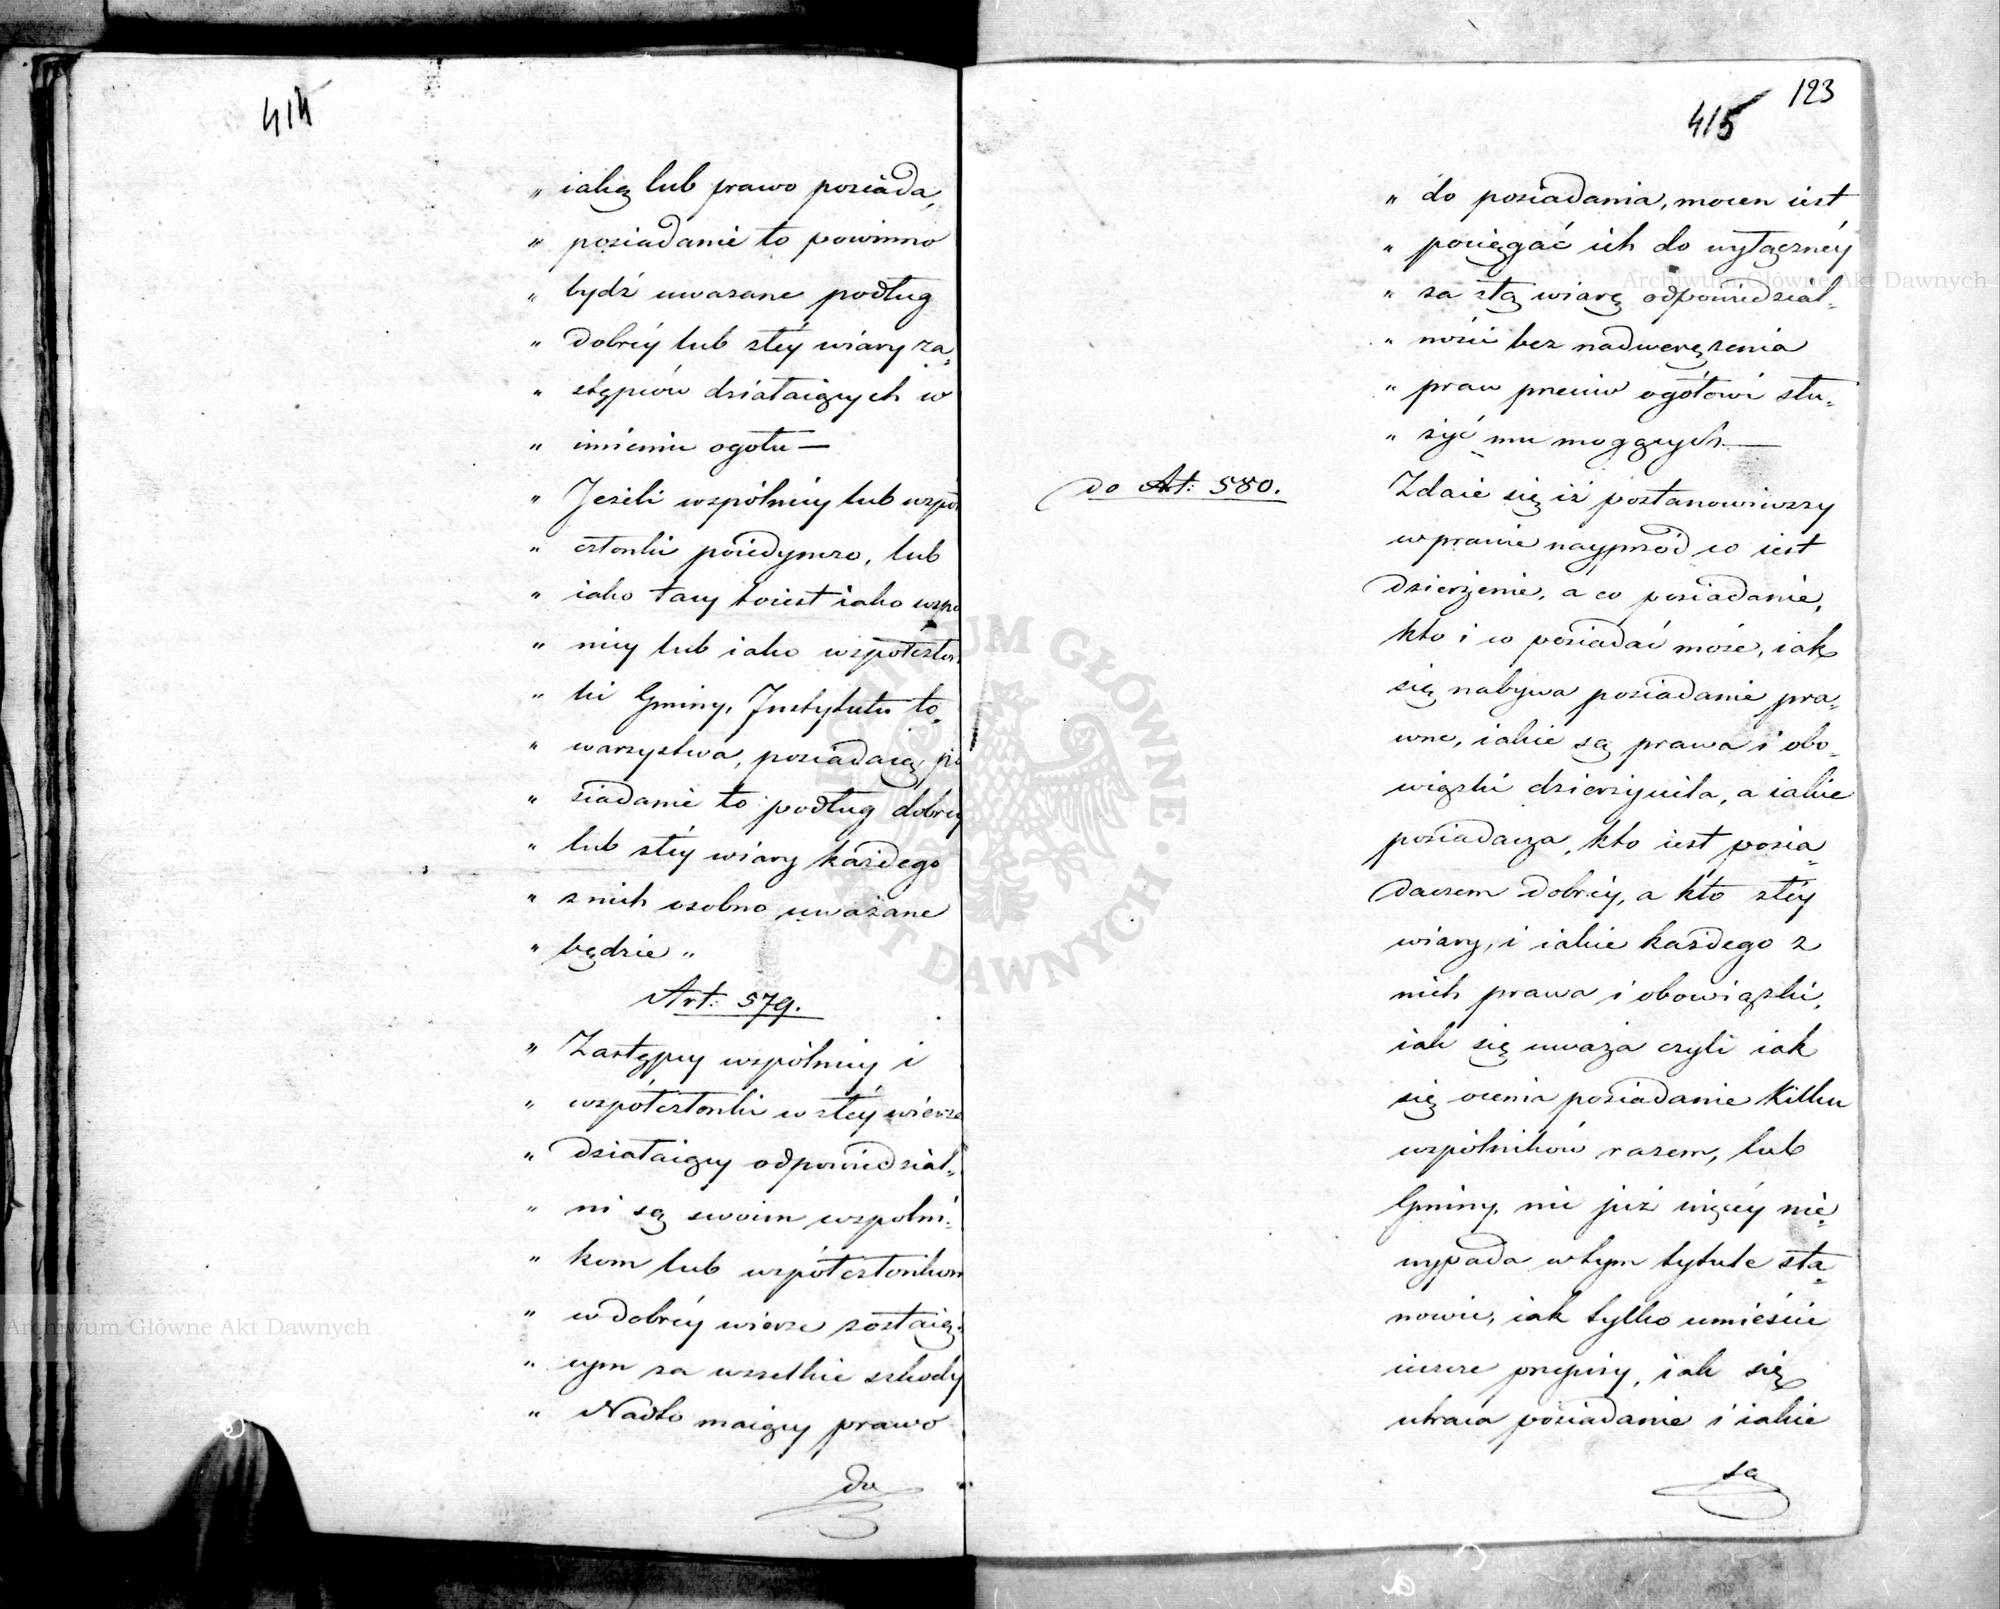 414
„ iaką lub prawo posiada,
„ posiadanie to powinno
„ bydź uwazane podług
„ dobréy lub złéy wiary za„
„ stępców działaiących w
„ imieniu ogołu —
„ Jeżeli wspólnicy lub wspó
„ członki poiedynczo, lub
„ iako tacy to iest iako wspo
„ nicy lub iako wspołczłon
„ ki Gminy, Instytutu to„
„ warzystwa, posiadaią, po
„ siadanie to podług dobréy
„ lub złéy wiary każdego
„ z nich osobno uważane
„ będzie „
Art: 579.
„ Zastępcy wspólnicy i
„ współczłonki w złéy wierze
„ działaiący odpowiedzial„
„ ni są swoim wspolni„
„ kom lub współczłonkom
„ w dobréy wierze zostaią„
„ cym za wszelkie szkody
„ Nadto maiący prawo
do
123
415
„ do posiadania, mocen iest
„ pociągać ich do wyłącznéy
„ za złą wiarę odpowiedzial„
„ ności bez nadwerężenia
„ praw przeciw ogółowi słu„
„ żyć mu mogących —
do Art: 580.
Zdaie się iż postanowiwszy
w prawie nayprzód co iest
dzierżenie, a co posiadanie,
kto i co posiadać może, iak
się nabywa posiadanie pra„
wne, iakie są prawa i obo„
wiązki dzierżyciela, a iakie
posiadacza, kto iest posia„
daczem dobréy, a kto złéy
wiary, i iakie każdego z
nich prawa i obowiązki,
iak się uważa czyli iak
się ocenia posiadanie kilku
wspólników razem, lub
Gminy, nic już więcéy nie
wypada w tym tytule sta„
nowić, iak tylko umieścić
ieszcze przepisy, iak się
utraca posiadanie i iakie
są
Archiwum Główne Akt Dawnych
ARCHIWUM GŁÓWNE AKT DAWNYCH
Archiwum Główne Akt Dawnych